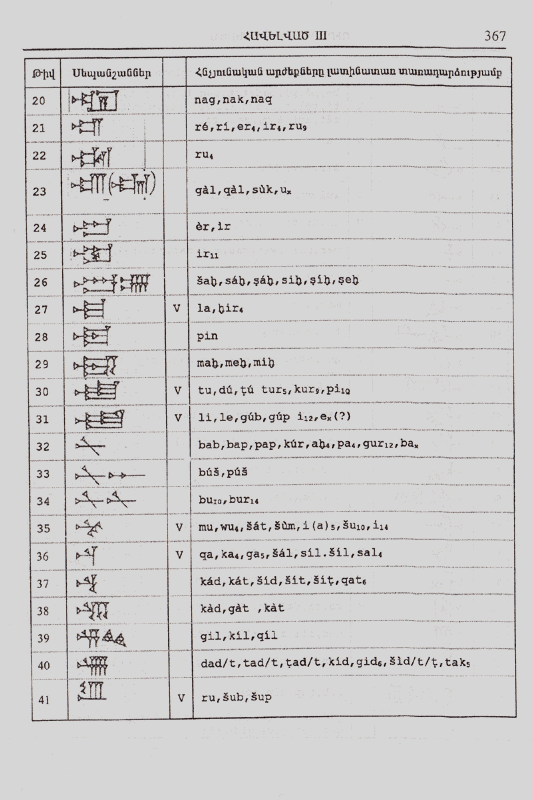 ՀԱՎԵԼՎԱԾ III 367
Թիվ Սեպանշաններ Հնչյունական արժեքները լատինատառ տառադարձությամբ
20 nag,nak,naq
21 ré,rí,er₄,ir₄,ru₉
22 ru₄
23 gàl,qàl,sùk,uₓ
24 èr,ìr
25 ir₁₁
26 šaḫ,sáḫ,ṣáḫ,siḫ,ṣíḫ,ṣeḫ
27 V la,ḫir₄
28 pin
29 maḫ,meḫ,miḫ
30 V tu,dú,ṭú tur₅,kur₉,pi₁₀
31 V li,le,gúb,gúp i₁₂,eₓ(?)
32 bab,bap,pap,kúr,aḫ₄,pa₄,gur₁₂,baₓ
33 búš,púš
34 bu₁₀,bur₁₄
35 V mu,wu₄,šát,šùm,i(a)₅,šu₁₀,i₁₄
36 V qa,ka₄,ga₅,šál,sìl.šíl,sal₄
37 kád,kát,šid,šit,šiṭ,qat₆
38 kàd,gàt ,kàt
39 gil,kil,qil
40 dad/t,tad/t,ṭad/t,kid,gid₆,šld/t/ṭ,tak₅
41 V ru,šub,šup